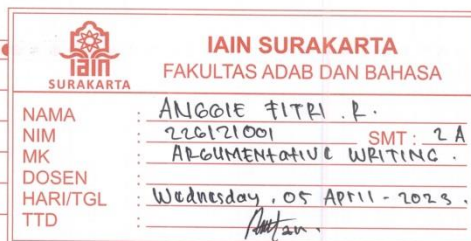 iain
SURAKARTA
IAIN SURAKARTA
FAKULTAS ADAB DAN BAHASA
NAMA : ANGGIE FITRI . R .
NIM : 226121001 SMT : 2 A
MK : ARGUMENtatiVe WRITING .
DOSEN :
HARI/TGL : Wednesday , 05 APril - 2023 .
TTD :